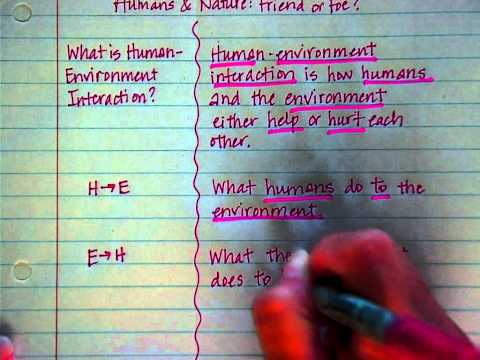 Humans & Nature: Friend or Foe?
What is Human-
Environment
Interaction?
Human-environment
interaction is how humans
and the environment
either help or hurt each
other.
H→E
What humans do to the
environment.
E→H
What the
does to